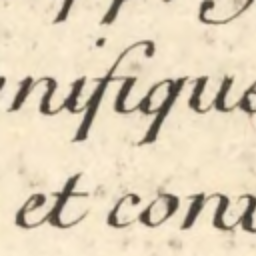 nifique
et con